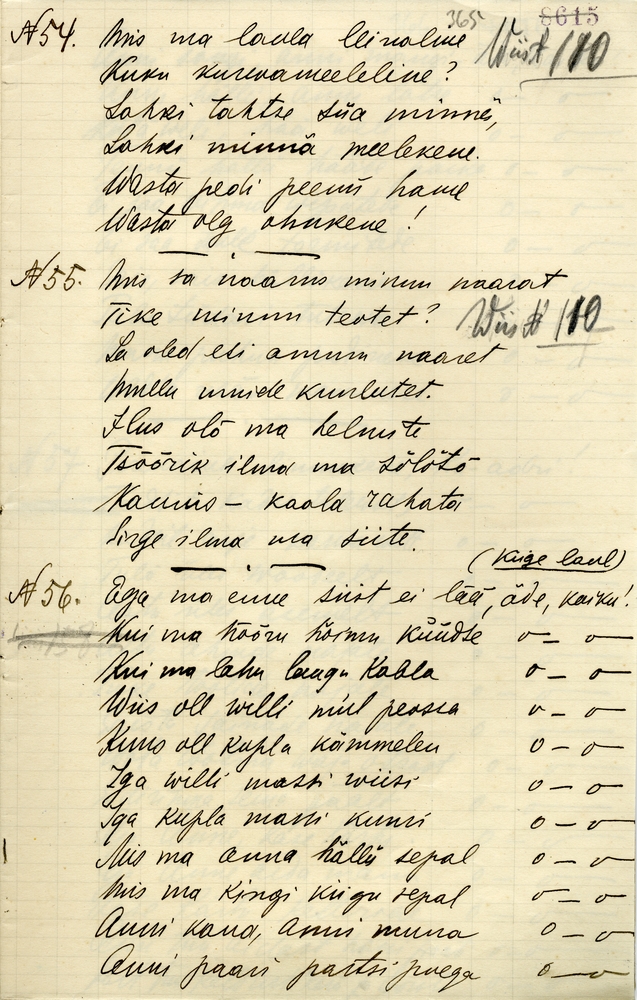 365 8615
N 54. Mis ma laula leinaline Wiis N 110
Kuku kurvameeleline?
Lahki tahtse süa minnä,
Lahki minnä meelekene.
Wasta pedi peenü hame
Wasta olg ohukene!
N 55. Mis sa naaros minun naarat
Tike minun teotet? Wiis N 110
Sa oled esi annun naaret
Mullu muide kuulutet.
Ilus olõ ma helmste
Tsõõrik ilma ma sõlõtõ
Kaunis – kaala rahata
Sirge ilma ma siite.
(Kiige laul)
N 56. Ega ma enne siist ei lää, õde, kaiku!
Kui ma kõõru kõimu küüdse o – o
Kui ma lahu laugu kabla o – o
Wiis oll willi mul peossa o – o
Kuus oll kupla kämmelen o – o
Iga willi massi wiisi o – o
Iga kupla massi kuusi o – o
Mis ma anna hällü sepal o – o
Mis ma kingi kiigu sepal o – o
Anni kana, anni muna o – o
Anni paari partsi poega o – o